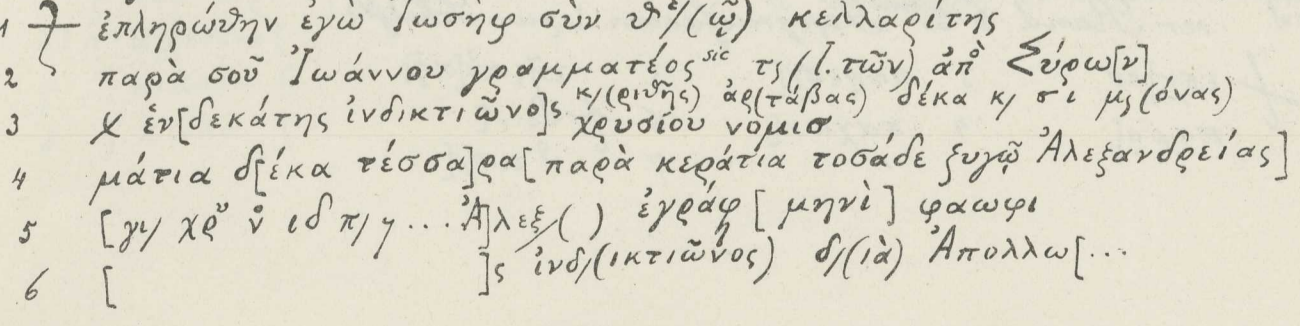 1 ⳨ ἐπληρώθην ἐγὼ Ἰωσὴφ σὺν θε/(ῷ) κελλαρίτης
2 παρὰ σοῦ Ἰωάννου γραμματέος sic τς/(ι. τῶν) ἀπὸ Σύρω[ν]
κ/(ριθῆς) ἀρ(τάβας) δέκα κ/ σ ι μς(όνας)
3 χ ἑν[δεκάτης ἰνδικτιῶνο]ς χρυσίου νομισ
4 μάτια δ[έκα τέσσα]ρα[ παρὰ κεράτια τοσάδε ζυγῷ Ἀλεξανδρείας]
5 [γι/ χρυ νο ιδ π/ η ... Ἀ]λεξ/( ) ἐγράφ[ μηνὶ ] φαωφι
6 [ ]ς ἰνδ/(ικτιῶνος) δ/(ιὰ) Ἀπολλω[...